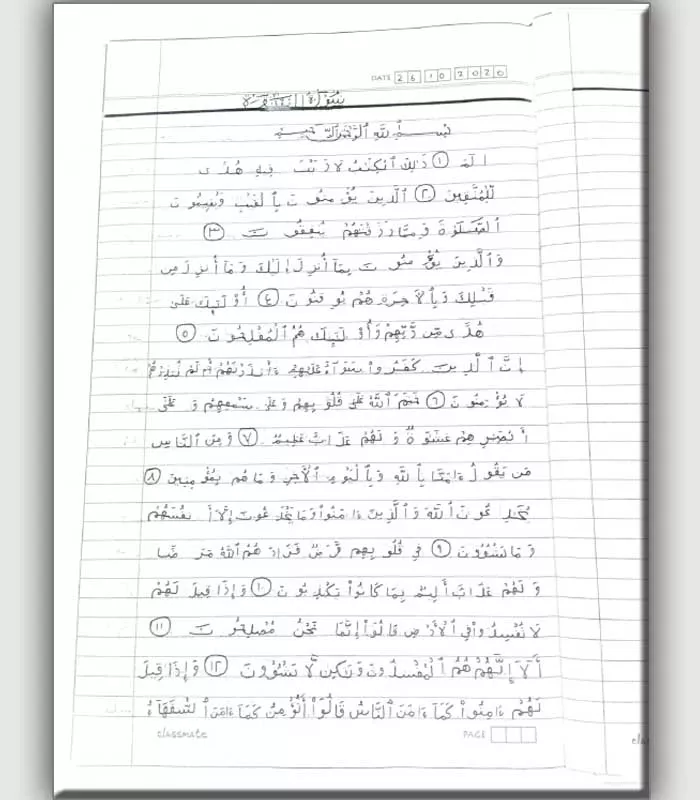 DATE 26 10 2020
سُورَةُ البَقَرَة
بِسْمِ اللهِ الرَّحْمٰنِ الرَّحِيمِ
الم ١ ذَلِكَ الْكِتَٰبُ لَا رَيْبَ فِيهِ هُدًى
لِّلْمُتَّقِينَ ٢ الَّذِينَ يُؤْمِنُونَ بِالْغَيْبِ وَيُقِيمُونَ
الصَّلَوٰةَ وَمِمَّا رَزَقْنَٰهُمْ يُنفِقُونَ ٣
وَالَّذِينَ يُؤْمِنُونَ بِمَا أُنزِلَ إِلَيْكَ وَمَا أُنزِلَ مِن
قَبْلِكَ وَبِالْأَخِرَةِ هُمْ يُوقِنُونَ ٤ أُوْلَٰئِكَ عَلَىٰ
هُدًى مِّن رَّبِّهِمْ وَأُوْلَٰئِكَ هُمُ الْمُفْلِحُونَ ٥
إِنَّ الَّذِينَ كَفَرُوا سَوَآءٌ عَلَيْهِمْ ءَأَنذَرْتَهُمْ أَمْ لَمْ تُنذِرْهُمْ
لَا يُؤْمِنُونَ ٦ خَتَمَ اللَّهُ عَلَىٰ قُلُوبِهِمْ وَعَلَىٰ سَمْعِهِمْ وَعَلَىٰ
أَبْصَٰرِهِمْ غِشَٰوَةٌ وَلَهُمْ عَذَابٌ عَظِيمٌ ٧ وَمِنَ النَّاسِ
مَن يَقُولُ ءَامَنَّا بِاللَّهِ وَبِالْيَوْمِ الْأَخِرِ وَمَا هُم بِمُؤْمِنِينَ ٨
يُخَٰدِعُونَ اللَّهَ وَالَّذِينَ ءَامَنُوا وَمَا يَخْدَعُونَ إِلَّا أَنفُسَهُمْ
وَمَا يَشْعُرُونَ ٩ فِي قُلُوبِهِم مَّرَضٌ فَزَادَهُمُ اللَّهُ مَرَضًا
وَلَهُمْ عَذَابٌ أَلِيمٌ بِمَا كَانُوا يَكْذِبُونَ ١٠ وَإِذَا قِيلَ لَهُمْ
لَا تُفْسِدُوا فِي الْأَرْضِ قَالُوا إِنَّمَا نَحْنُ مُصْلِحُونَ ١١
أَلَا إِنَّهُمْ هُمُ الْمُفْسِدُونَ وَلَٰكِن لَّا يَشْعُرُونَ ١٢ وَإِذَا قِيلَ
لَهُمْ ءَامِنُوا كَمَآ ءَامَنَ النَّاسُ قَالُوا أَنُؤْمِنُ كَمَآ ءَامَنَ السُّفَهَآءُ
classmate PAGE